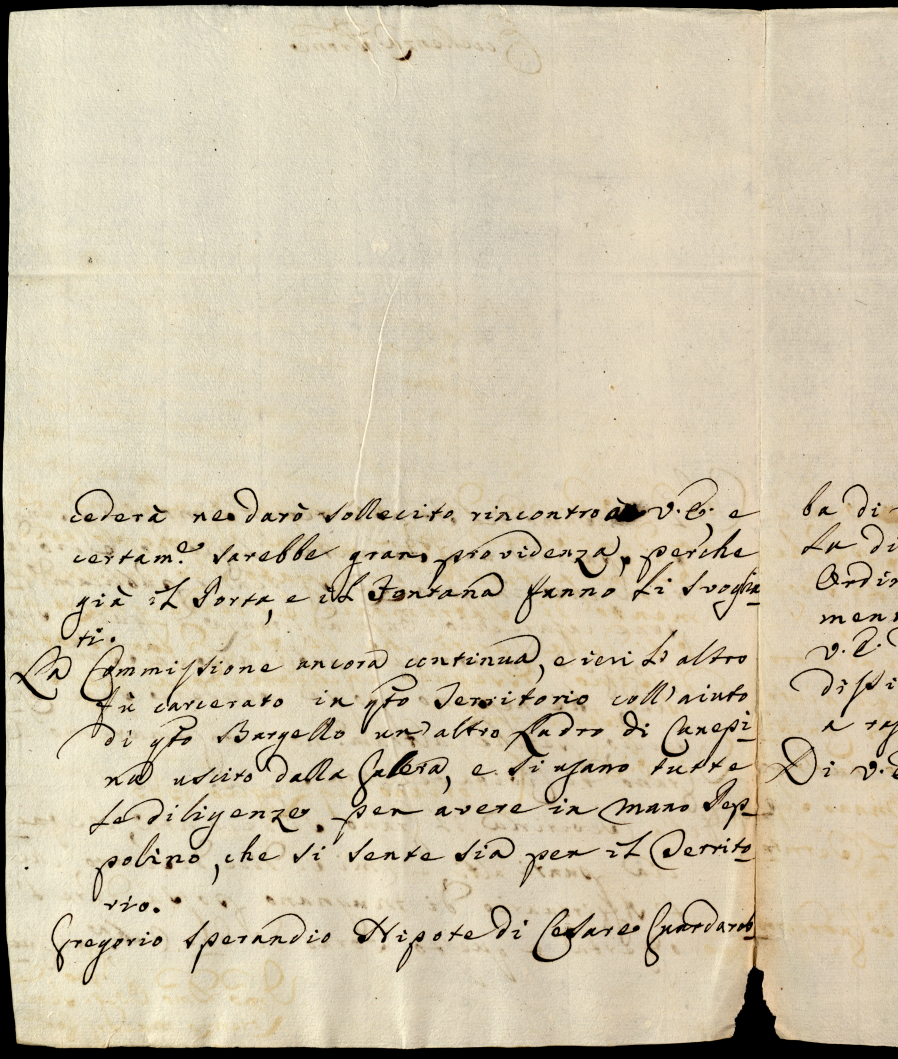 cederà ne darò sollecito rincontro à V.E., e
certam.e sarebbe gran providenza, perche
già il Porta, e il Fontana fanno li svoglia-
ti.
La Commissione ancora continua, e ieri l'altro
fù carcerato in q̃to Territorio coll'aiuto
di q̃to Bargello un'altro Ladro di Canepi-
na uscito dalla Galera, e si usano tutte
le diligenze per avere in mano Pep-
polino, che si sente sia per il Territo-
rio.
Gregorio Sperandio Nipote di Cesare Guardarob-
ba di
La di
Ordin
men
V.E.
dispi
a rap
Di V.E